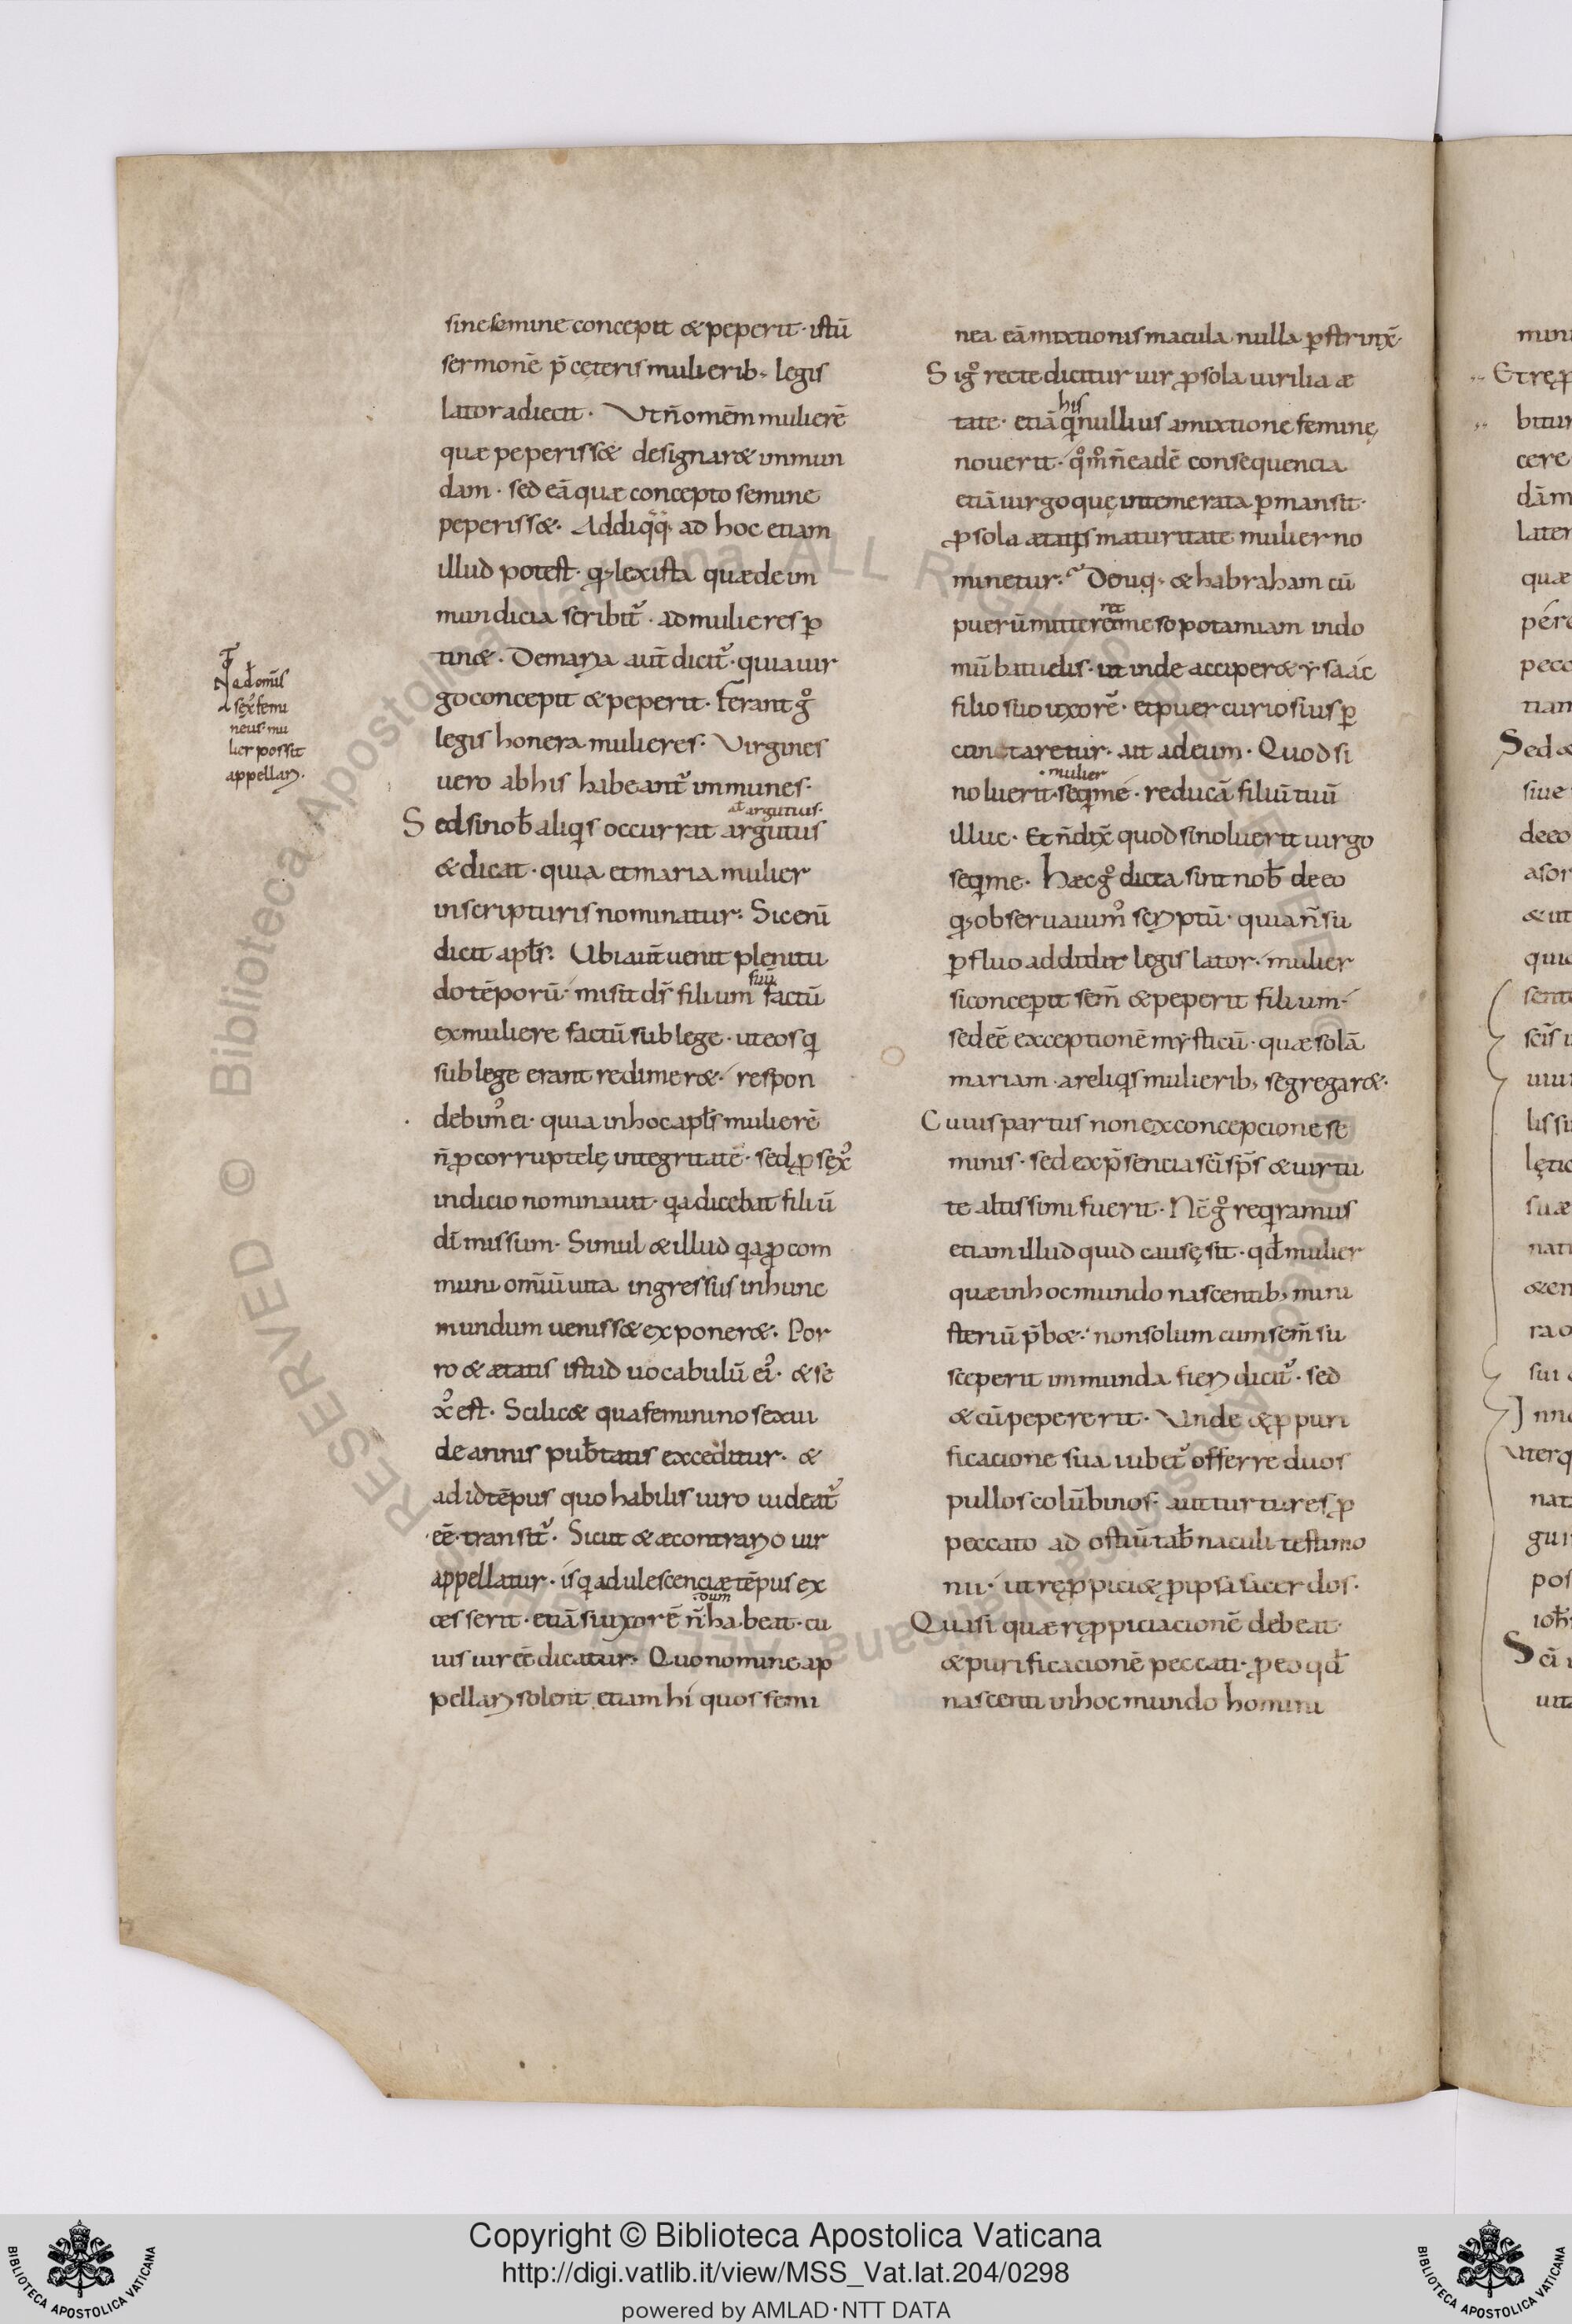 sine semine concepit & peperit · istū
sermonē p̄ cęteris mulierib; legis
lator adiecit · Ut n̄ omēm mulierē
quæ peperiss& designar& inmun
dam · sed eā quæ concepto semine
peperiss& · Addi q̈q̈; ad hoc etiam
illud potest · q; lex ista quæ de in
mundicia scribit᷑ · ad mulieres ꝑ
tin& · De maria aut̄ dicit᷑ · quia uir
go concepit & peperit · Ferant gͦ
legis honera mulieres · Virgines
uero ab his habeant᷑ inmunes ·
at argutius ·
Sed si nob̄ aliqis occurrat argutus
& dicat · quia et maria mulier
in scripturis nominatur : Sic enī
dicit apƚs : Ubi aut̄ uenit plenitu
suū
do tēporū · misit ds̄ filium factū
ex muliere factū sub lege · ut eos qi
sub lege erant redimer& · respon
debim᷒ ei · quia in hoc apƚs mulierē
n̄ ꝓ corruptelę integritatē · sed ꝓ sex᷒
indicio nominauit · qa dicebat filiū
dī missum · Simul & illud qa ꝓ com
muni omīū uita ingressus in hunc
mundum ueniss& exponer& · Por
ro & ætatis istud uocabulū ei᷒ · & se
x᷒ est · Scilic& qua feminino sexui
de annis pub̄tatis exceditur · &
ad id tēpus quo habilis uiro uideat᷑
eē · transit᷑ · Sicut & æcontrario uir
appellatur · is qi adulescenciæ tēpus ex
· dum
cesserit · etiā si uxorē n̄ habeat · cu
ius uir eē dicatur · Quo nomine ap
pellari solent etiam hi quos femi
Nad omīs
sex᷒ femi
neus · mu
lier possit
appellari ·
nea eā mixtionis macula nulla ꝑstrinx̄ ·
Si gͦ recte dicitur uir ꝓ sola uirili a æ
his
tate · etiā qi nullius amixtione feminę
nouerit · qͦmͦ n̄ eadē consequencia
etiā uirgo quę intemerata ꝑmansit ·
ꝓ sola ætatis maturitate mulier no
minetur : Deniq; & habraham cū
puerū mitter& in mesopotamiam in do
mū batuelis · ut inde acciper& ysaác
filio suo uxorē · et puer curiosius ꝑ
cunctaretur · ait ad eum · Quod si
· mulier
noluerit · seqi me · reducā filiū tuū
illuc · Et n̄ dix̄ quod si noluerit uirgo
seqi me · Hæc gͦ dicta sint nob̄ de eo
q; obseruauim᷒ scriptū · quia n̄ su
ꝑfluo addidit legis lator · mulier
si conceperit sem̄ & peperit filium ·
sed eē exceptionē mysticū · quæ solā
mariam a reliqis mulierib; segregar& ·
Cuius partus non ex concepcione se
minis · sed ex p̄sencia scī sp̄s & uirtu
te altissimi fuerit · Nc̄ gͦ reqiramus
etiam illud quid causę sit · qd̄ mulier
quæ in hoc mundo nascentib; mini
steriū p̄b& · non solum cum sem̄ su
sceperit inmunda fieri dicit᷑ · sed
& cū pepererit · Unde & ꝓ puri
ficacione sua iubet᷑ offerre duos
pullos colūbinos · aut turtures ꝓ
peccato ad ostiū tab̄naculi testimo
nii · ut ręꝓpici& ꝓ ipsa sacerdos ·
Quasi quæ ręꝓpiciacionē debeat ·
& purificacionē peccati · ꝓ eo qd̄
nascenti in hoc mundo homini
Copyright © Biblioteca Apostolica Vaticana
http://digi.vatlib.it/view/MSS_Vat.lat.204/0298
powered by AMLAD·NTT DATA
BIBLIOTECA APOSTOLICA VATICANA
BIBLIOTECA APOSTOLICA VATICANA